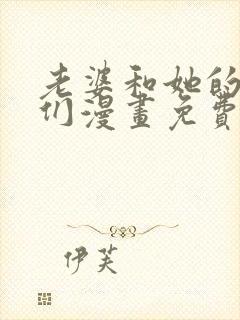 老婆和她的
们漫畫免費
伊芙